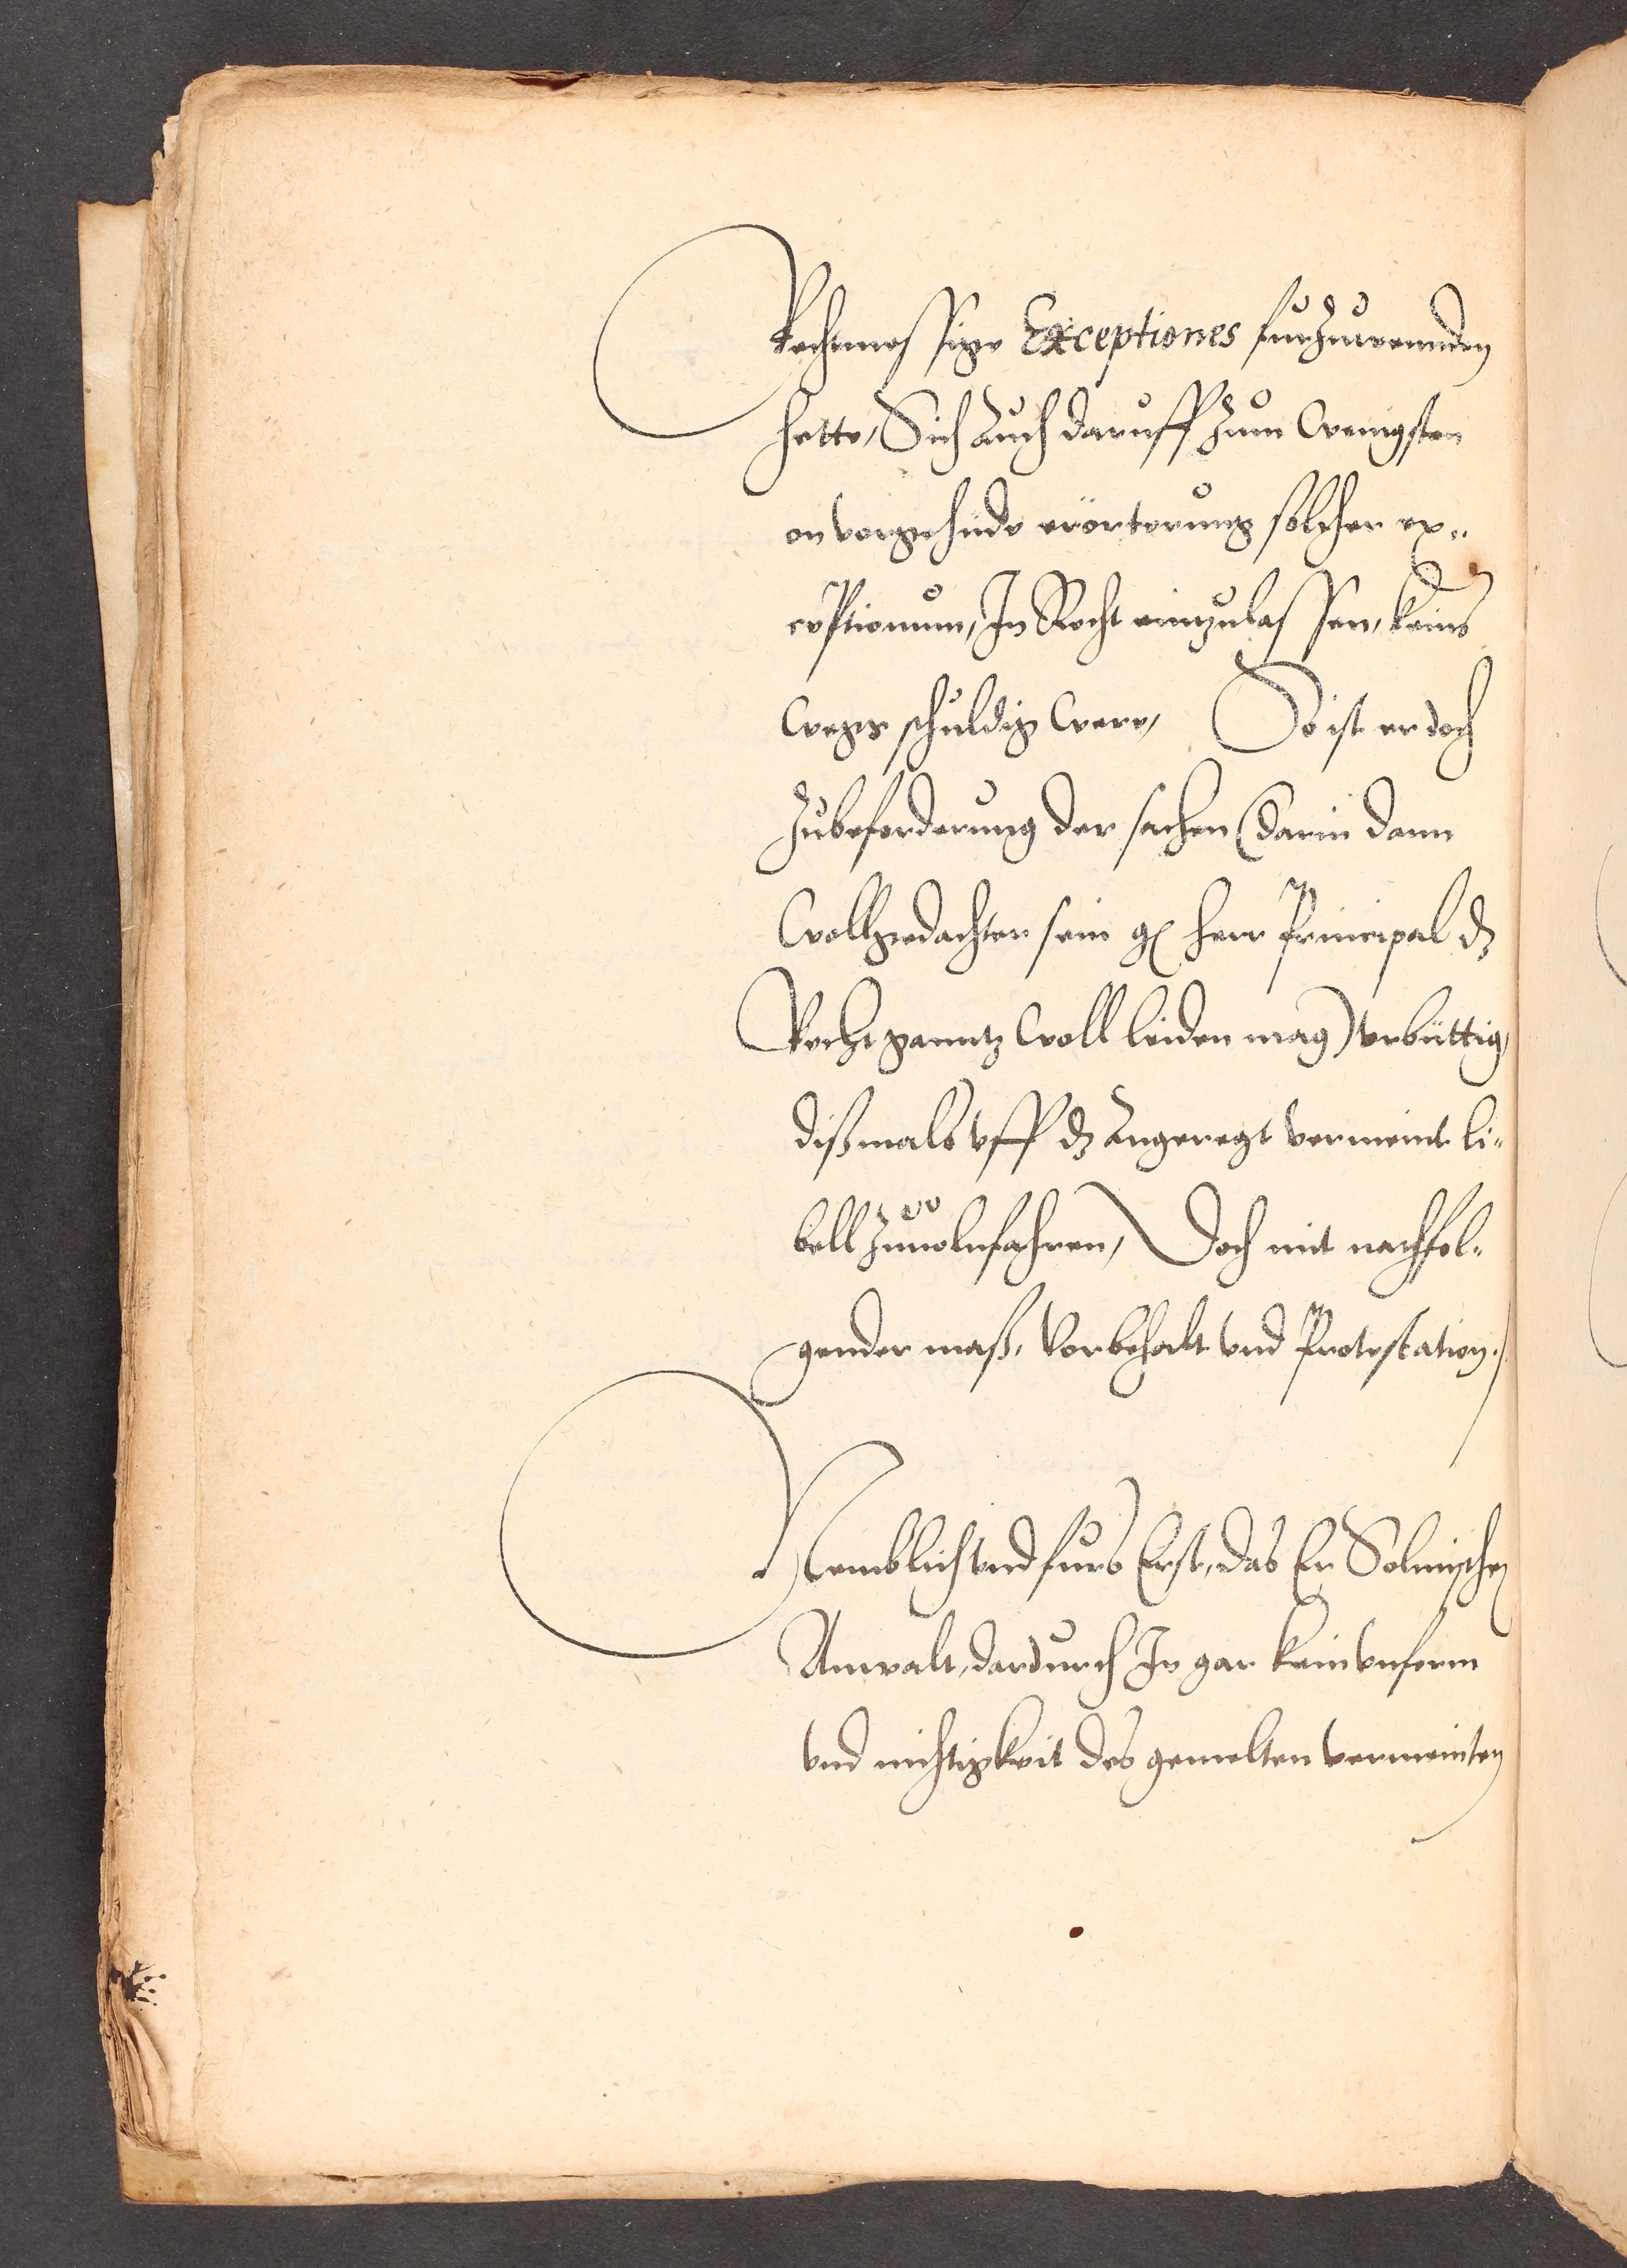 Rechtmessige Exceptiones furzuwennden
hette, Sich Auch daruff zum Wenigsten
on vorgehnde erörterung solcher ex¬
ceptionum, In Recht einzulassen, keins
Wegs schuldig Were, So ist er doch
Zubeforderung der sachen (darin dann
Wollgedachter sein g Herr Principal dz
Recht ganntz Woll leiden mag) vrbüttig,
dißmals vff dz Angeregt vermeint li¬
bell zuuolnfahren, Doch mit nachfol¬
gender maß, Vorbehalt vnd Protestation.
Nemblich vnd furs Erst, das Er Solmischer
Anwalt, dardurch In gar kein vnform
vnd nichtigkeit des gemelten vermeinten